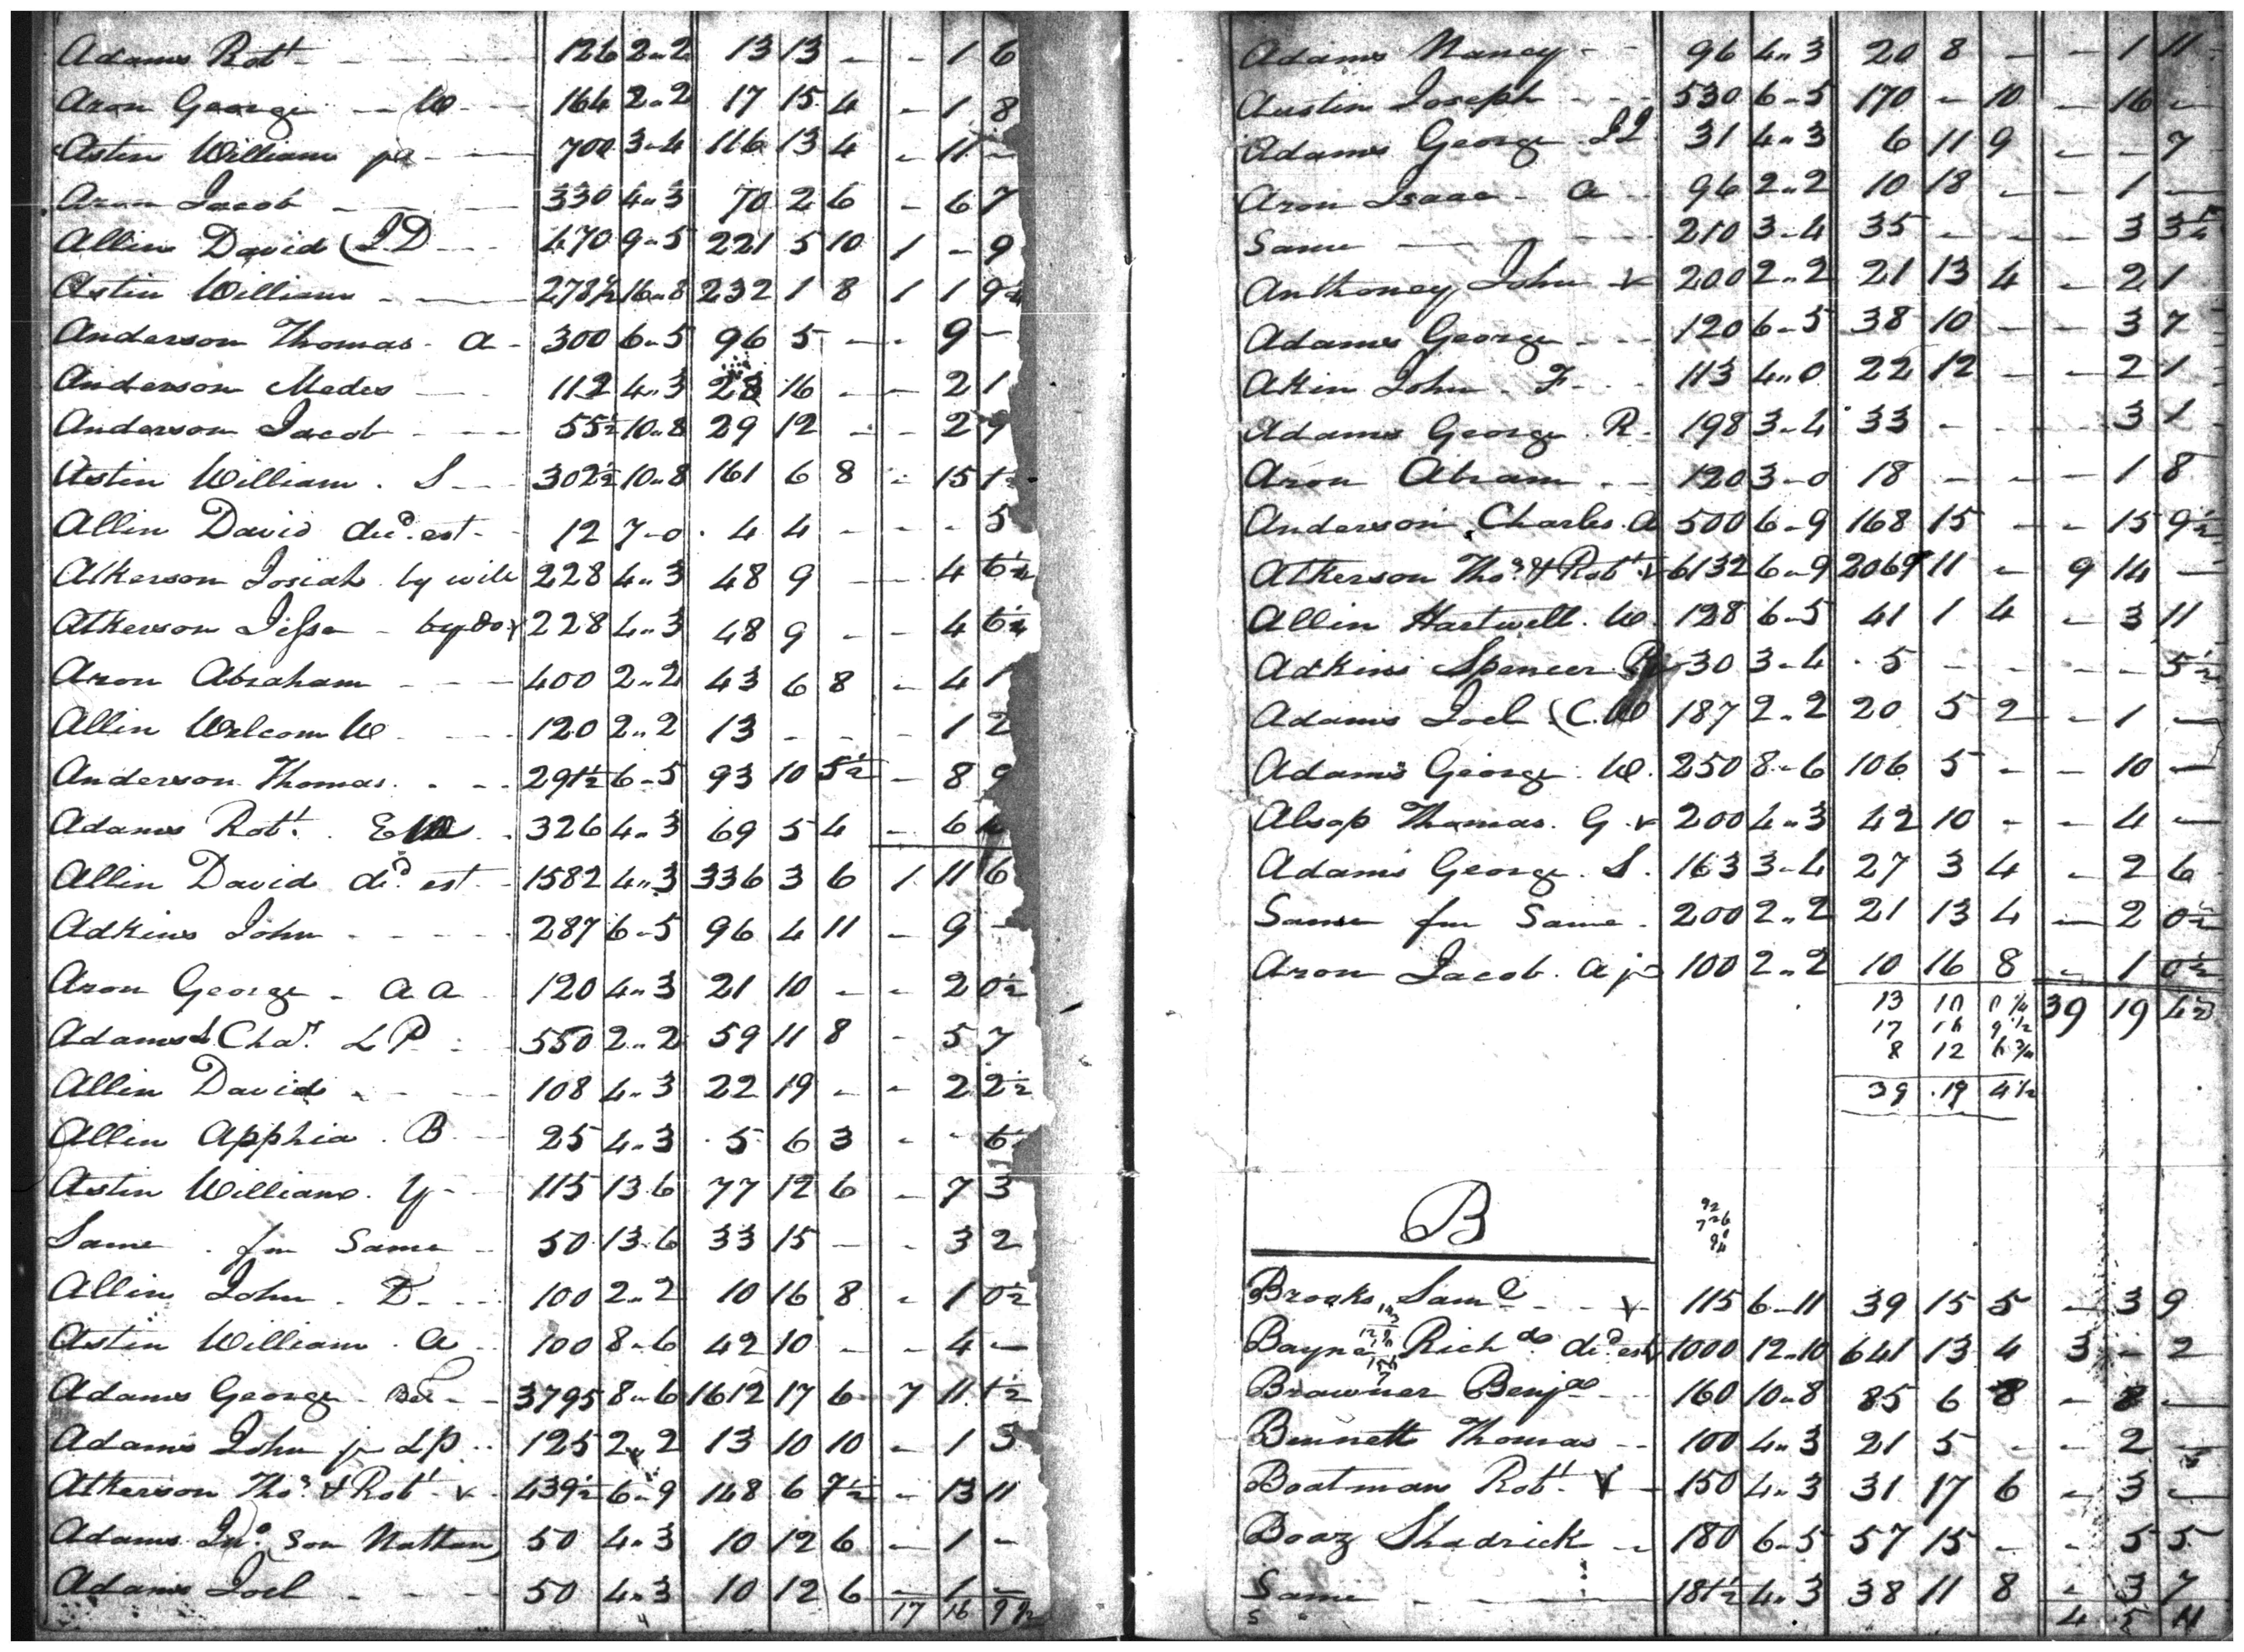 Adams Robt - 126 2..2 13 13 - - 1 6
Aron George - W 164 2..2 17 15 4 - 1 8
Astin William 700 3-4 116 13 4 - 11 -
Aron Jacob - 330 4..3 70 2 6 - 6 7
Allin David (S D 470 9-5 221 5 10 1 - 9
Astin William - 278½ 16..8 232 1 8 1 1 9½
Anderson Thomas - a - 300 6-5 96 5 - - 9 -
Anderson Medes 112 4..3 23 16 - - 2 1
Anderson Jacob - 55½ 10..8 29 12 - - 2 9
Astin William . S - 302½ 10..8 161 6 8 - 15 1
Allin David decd. est - 12 7-0 4 4 - - - 5
Atkerson Josiah by will 228 4..3 48 9 - - 4 6½
Atkerson Jesse - by do v 228 4..3 48 9 - - 4 6½
Aron Abraham - 400 2..2 43 6 8 - 4 1
Allin Welcom W - 120 2..2 13 - - - 1 2
Anderson Thomas - 291½ 6-5 93 10 5½ - 8 9
Adams Robt. 326 4..3 69 5 4 - 6
Allin David decd. est - 1582 4..3 336 3 6 1 11 6
Adkins John - 287 6-5 96 4 11 - 9 -
Aron George - a a 120 4..3 21 10 - - 2 0½
Adams Chas. L P - 550 2..2 59 11 8 - 5 7
Allin David - 108 4..3 22 19 - - 2 2½
Allin Apphia . B - 25 4..3 5 6 3 - - 6
Astin William . y - 115 13-6 77 12 6 - 7 3
Same . fm Same - 50 13-6 33 15 - - 3 2
Allin John . D - 100 2..2 10 16 8 - 1 0½
Astin William . a 100 8-6 42 10 - - 4 -
Adams George - 3795 8-6 1612 17 6 7 11 1½
Adams John jr L P .. 125 2..2 13 10 10 - 1 3
Atkerson Thos. & Robt - v 439½ 6-9 148 6 7½ - 13 11
Adams Jno. Son Nathan) 50 4..3 10 12 6 - 1 -
Adams Joel - 50 4..3 10 12 6 - 1 -
17 16 9½
Adams Nancy - 96 4..3 20 8 - - 1 11
Austin Joseph - 530 6-5 170 - 10 - 16 -
Adams George 31 4..3 6 11 9 - - 7
Aron Isaac - a 96 2..2 10 18 - - 1 -
Same - 210 3-4 35 - - - 3 3½
Anthoney John - v 200 2..2 21 13 4 - 2 1
Adams George - 120 6-5 38 10 - - 3 7
Akin John . F - 113 4..0 22 12 - - 2 1
Adams George . R - 198 3-4 33 - - - 3 1
Aron Abram . - 120 3-0 18 - - - 1 8
Anderson Charles . a 500 6-9 168 15 - - 15 9½
Atkerson Thos. & Robt. v 6132 6-9 2069 11 - 9 14 -
Allin Hartwell . W 128 6-5 41 1 4 - 3 11
Adkins Spencer 30 3-4 5 - - - - 5½
Adams Joel (C.W 187 2..2 20 5 2 - 1 -
Adams George . W. 250 8-6 106 5 - - 10 -
Alsop Thomas . G . v 200 4..3 42 10 - - 4 -
Adams George . S . 163 3-4 27 3 4 - 2 6
Same fm Same . 200 2..2 21 13 4 - 2 0½
Aron Jacob . a jr 100 2..2 10 16 8 - 1 0½
13 10 39 19 4½
17 9½
8 12
39 19 4½
B
92
726
94
Brooks Saml. - v 115 6-11 39 15 5 - 3 9
Bayne Richd. decd. est v 1000 12..10 641 13 4 3 - 2
Brawner Benja. 160 10..8 85 6 8 - 8 -
Bennett Thomas - 100 4..3 21 5 - - 2 -
Boatman Robt. V - 150 4..3 31 17 6 - 3 -
Boaz Shadrick - 180 6-5 57 15 - - 5 5
Same - 181½ 4..3 38 11 8 - 3 7
4 5 11